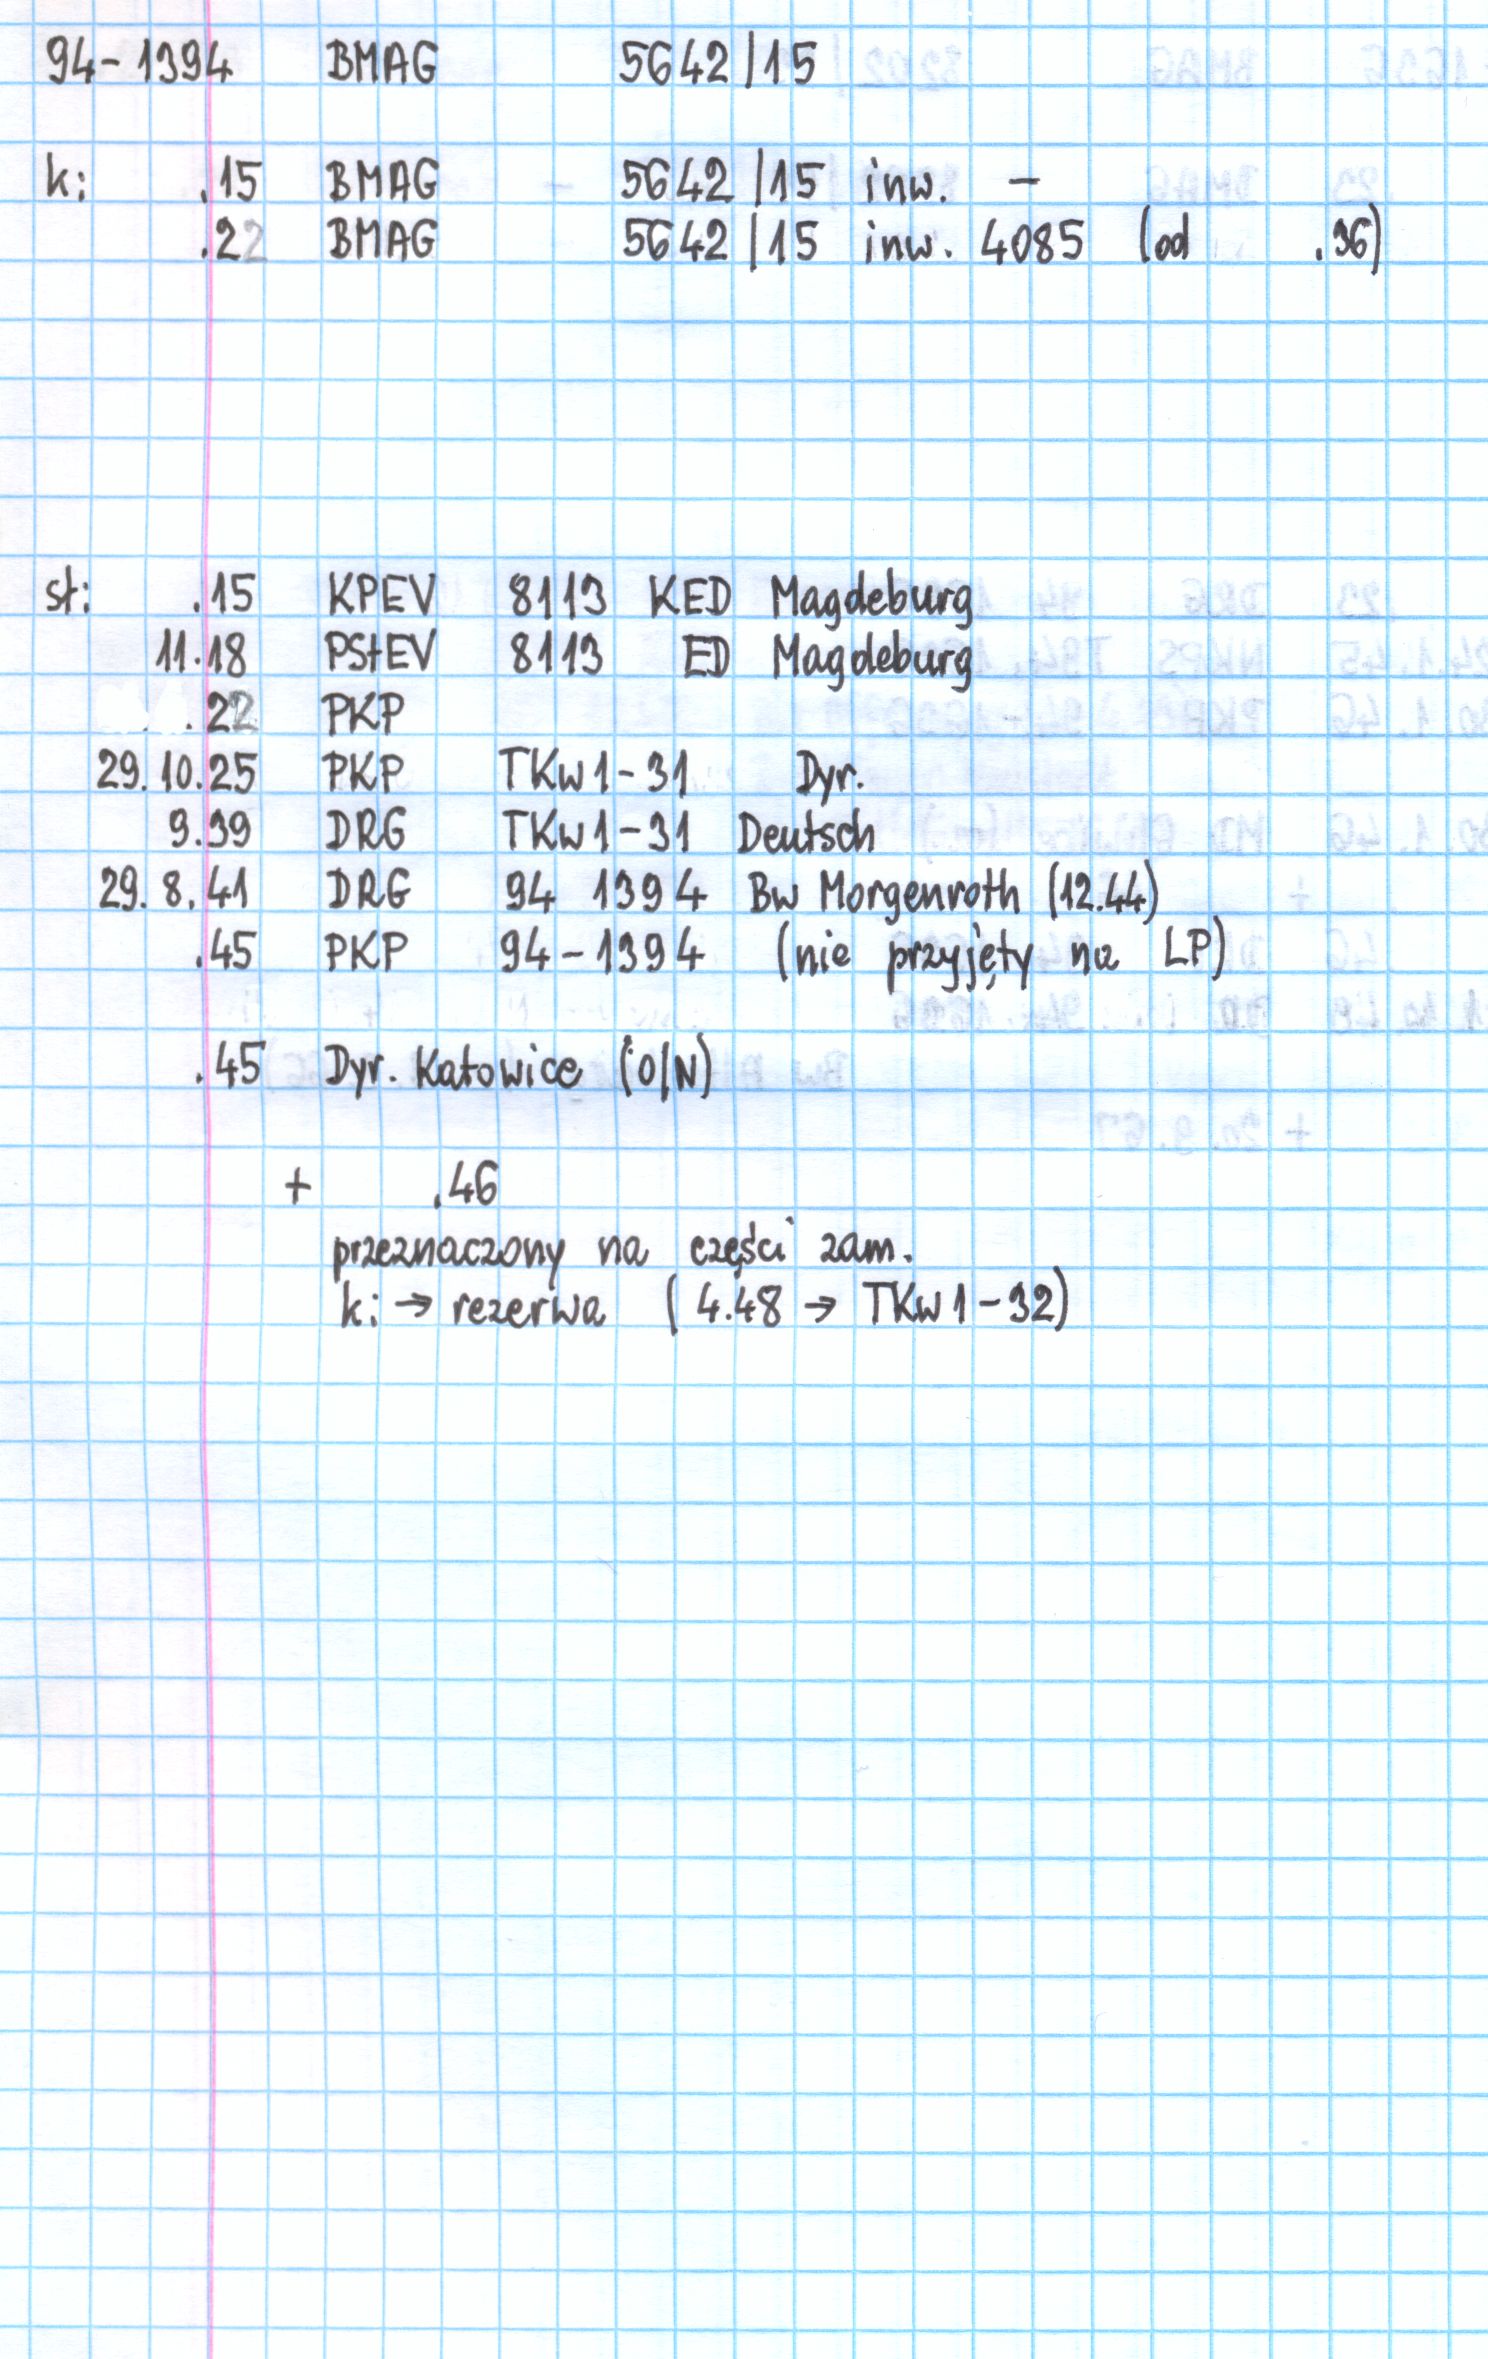 94-1394 BMAG 5642/15
k: .15 BMAG 5642/15 inw. -
.22 BMAG 5642/15 inw. 4085 (od .36)
st: .15 KPEV 8113 KED Magdeburg
11.18 PStEV 8113 ED Magdeburg
.22 PKP
29.10.25 PKP TKw1-31 Dyr.
9.39 DRG TKw1-31 Deutsch
29.8.41 DRG 94 1394 Bw Morgenroth (12.44)
.45 PKP 94-1394 (nie przyjęty na LP)
.45 Dyr. Katowice (O/N)
+ .46
przeznaczony na części zam.
k: → rezerwa (4.48 → TKw1-32)